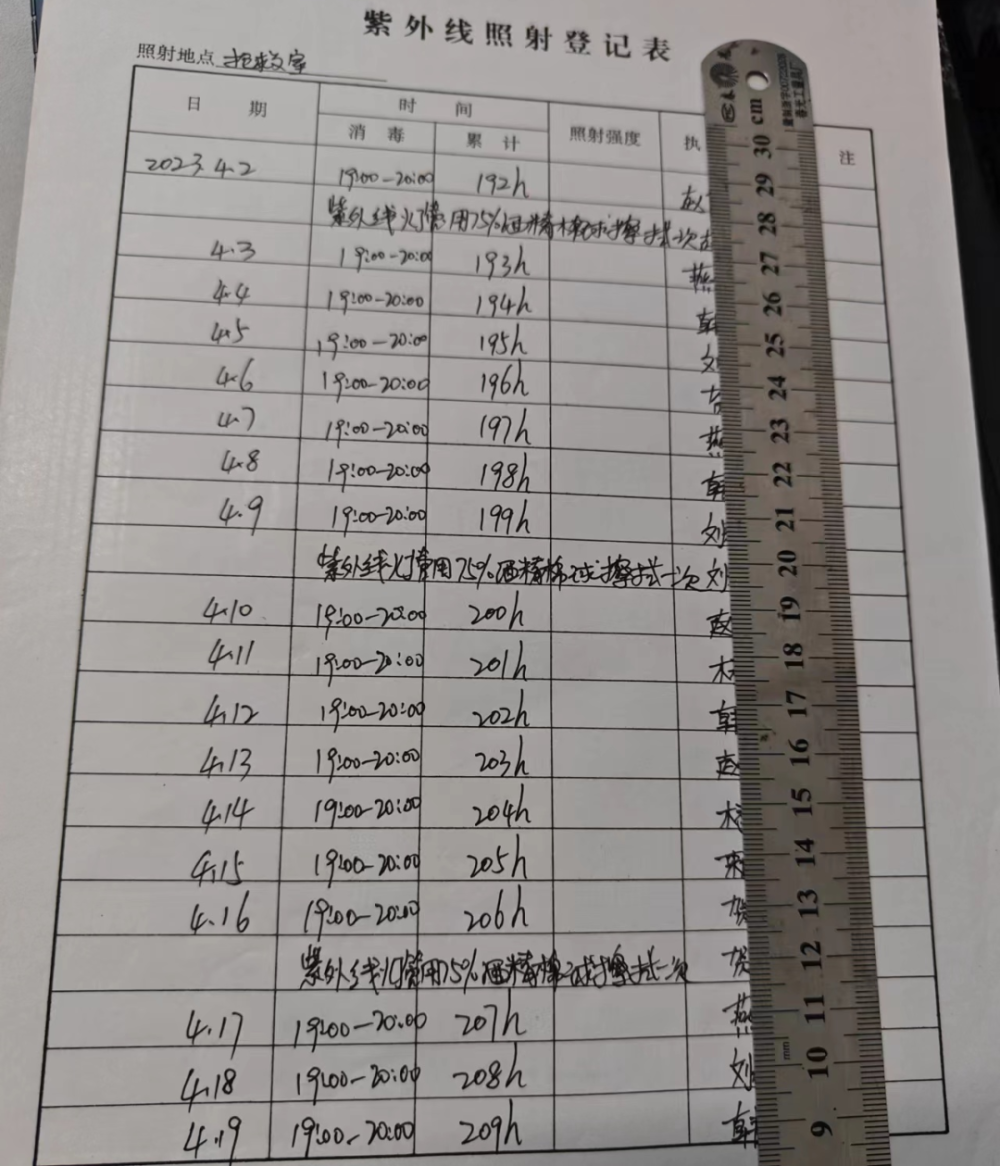 紫外线照射登记表
照射地点 抢救室
日 期 时 间 照射强度 执 注
消 毒 累 计
2023.4.2 19:00-20:00 192h 赵
紫外线灯管用75%酒精棉球擦拭一次
4.3 19:00-20:00 193h 燕
4.4 19:00-20:00 194h 韩
4.5 19:00-20:00 195h 刘
4.6 19:00-20:00 196h
4.7 19:00-20:00 197h 燕
4.8 19:00-20:00 198h 韩
4.9 19:00-20:00 199h 刘
紫外线灯管用75%酒精棉球擦拭一次 刘
4.10 19:00-20:00 200h 赵
4.11 19:00-20:00 201h
4.12 19:00-20:00 202h 韩
4.13 19:00-20:00 203h 赵
4.14 19:00-20:00 204h
4.15 19:00-20:00 205h
4.16 19:00-20:00 206h 贺
紫外线灯管用75%酒精棉球擦拭一次 贺
4.17 19:00-20:00 207h 燕
4.18 19:00-20:00 208h 刘
4.19 19:00-20:00 209h 韩
cm
30
29
28
27
26
25
24
23
22
21
20
19
18
17
16
15
14
13
12
11
mm
10
9